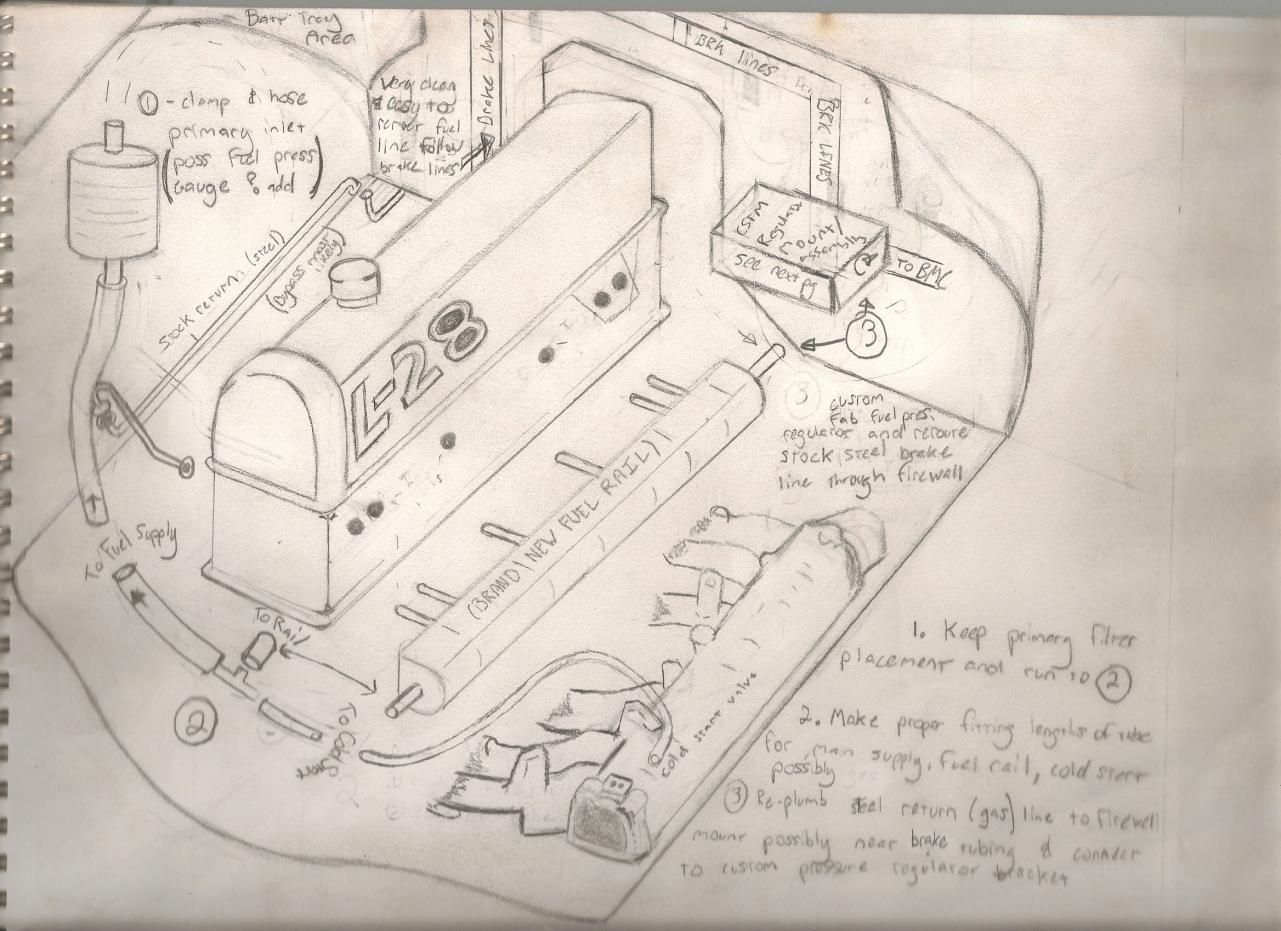 Batt Tray
Area
Brake Lines
BRK lines
BRK LINES
① - clamp & hose
primary inlet
(poss fuel press)
Gauge ? add
Very clean
& easy to
reroute fuel
line follow
brake lines
Stock return (steel)
(bypass most
likely)
L-28
CSTM
Regulator
mount/
assembly
②
see next pg
TO BMC
③
③ custom
Fab fuel pres.
regulator and reroute
stock steel brake
line through firewall
(BRAND) NEW FUEL RAIL)
To Fuel Supply
TO RAIL
②
To Cold
Start
cold start valve
1. Keep primary filter
placement and run to ②
2. Make proper fitting lengths of tube
for main supply, fuel rail, cold start
possibly
③ Re-plumb steel return (gas) line to firewall
mount possibly near brake tubing & connect
to custom pressure regulator bracket